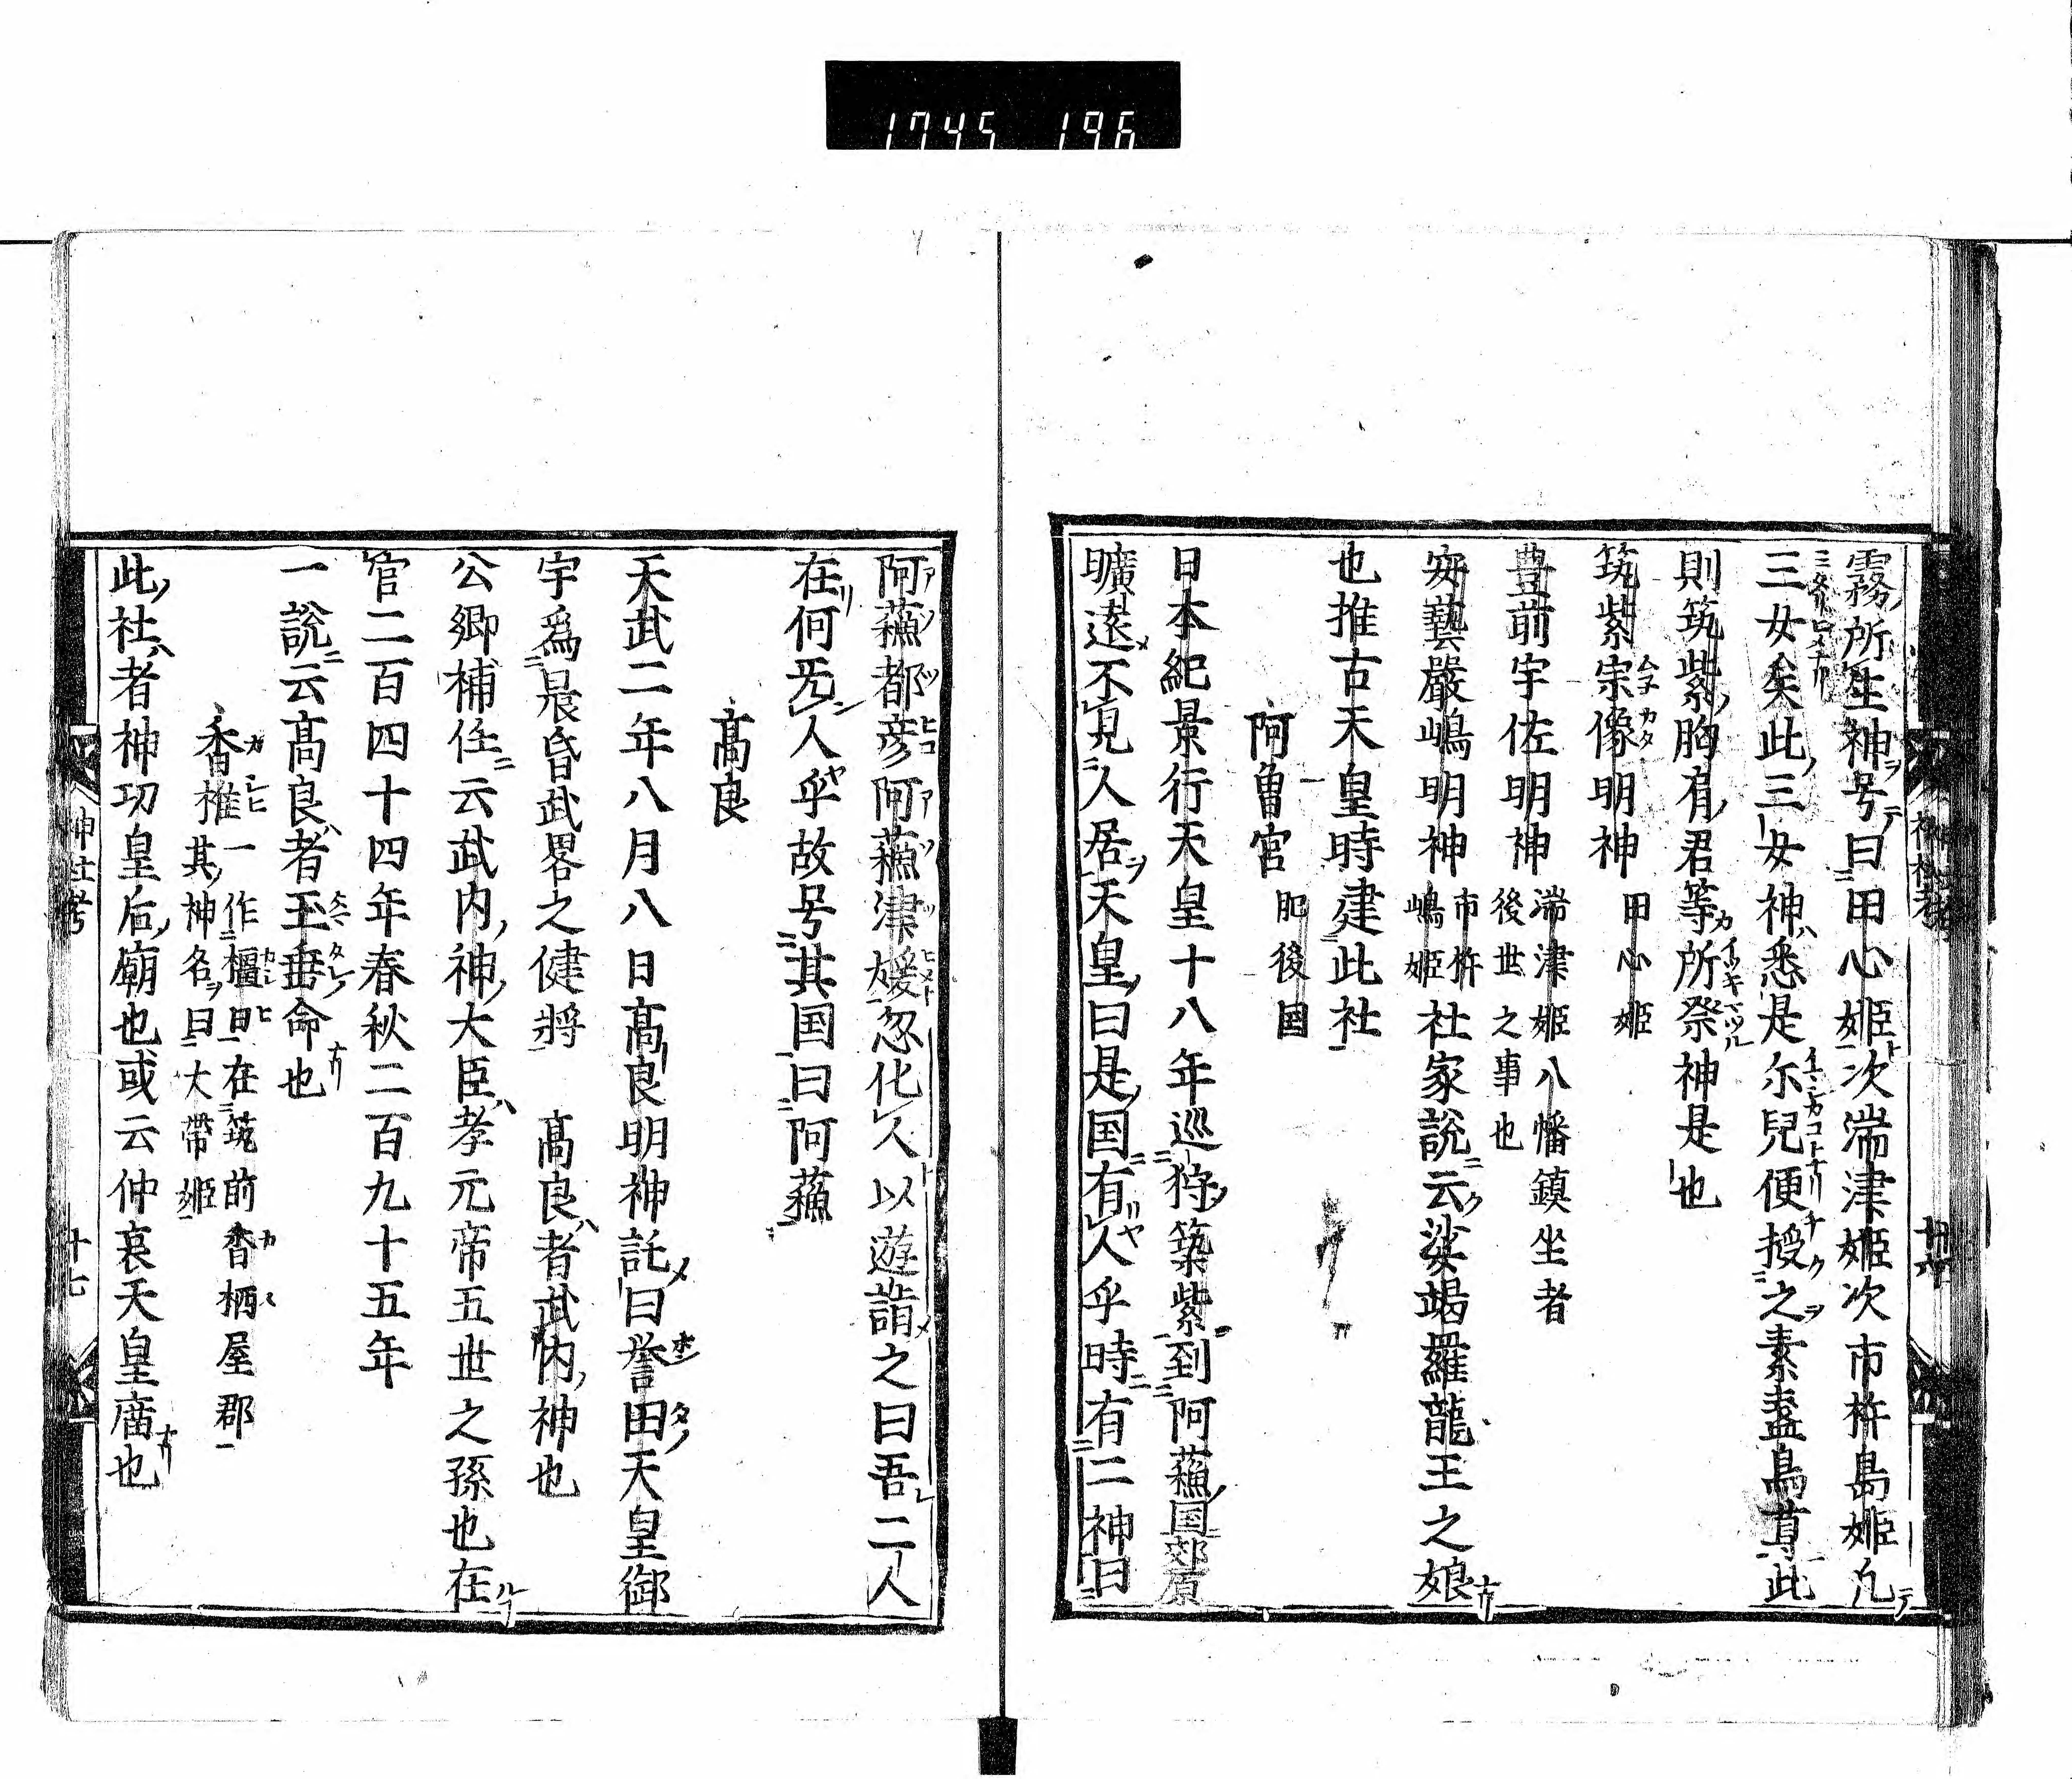 1745 196
霧所生神号曰田心姫次湍津姫次市杵島姫凡
三女矣此三女神悉是尓兒便授之素盞烏尊此
則筑紫胸肩君等所祭神是也
筑紫宗像明神 田心姫
豊前宇佐明神 湍津姫八幡鎮坐者
後世之事也
安藝嚴嶋明神 市杵
嶋姫 社家説云娑竭羅龍王之娘
也推古天皇時建此社
阿曽宮 肥後国
日本紀景行天皇十八年巡狩築紫到阿蘓国郊原
曠遠不見人居天皇曰是国有人乎時有二神曰
阿蘓都彦阿蘓津媛忽化人以遊詣之曰吾二人
在何无人乎故号其国曰阿蘓
髙良
天武二年八月八日髙良明神託曰誉田天皇御
宇爲晨昏武畧之健将 髙良者武内神也
公卿補任云武内神大臣孝元帝五世之孫也在
官二百四十四年春秋二百九十五年
一説云髙良者玉垂命也
香椎 一作橿日在筑前香柄屋郡
其神名曰大帶姫
此社者神功皇后廟也或云仲哀天皇庿也
神社考
十七